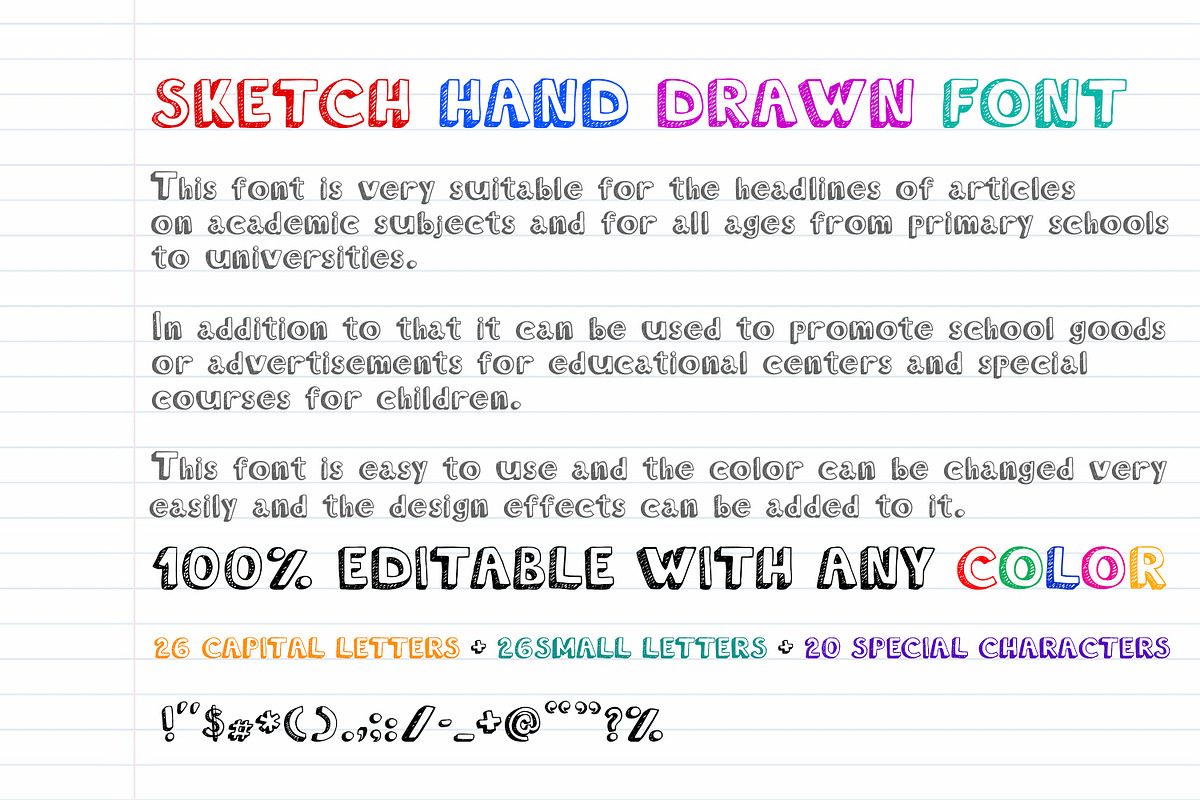 SKETCH HAND DRAWN FONT
This font is very suitable for the headlines of articles
on academic subjects and for all ages from primary schools
to universities.
In addition to that it can be used to promote school goods
or advertisements for educational centers and special
courses for children.
This font is easy to use and the color can be changed very
easily and the design effects can be added to it.
100% EDITABLE WITH ANY COLOR
26 CAPITAL LETTERS + 26SMALL LETTERS + 20 SPECIAL CHARACTERS
!"$#*().,;:/-_+@“”?%